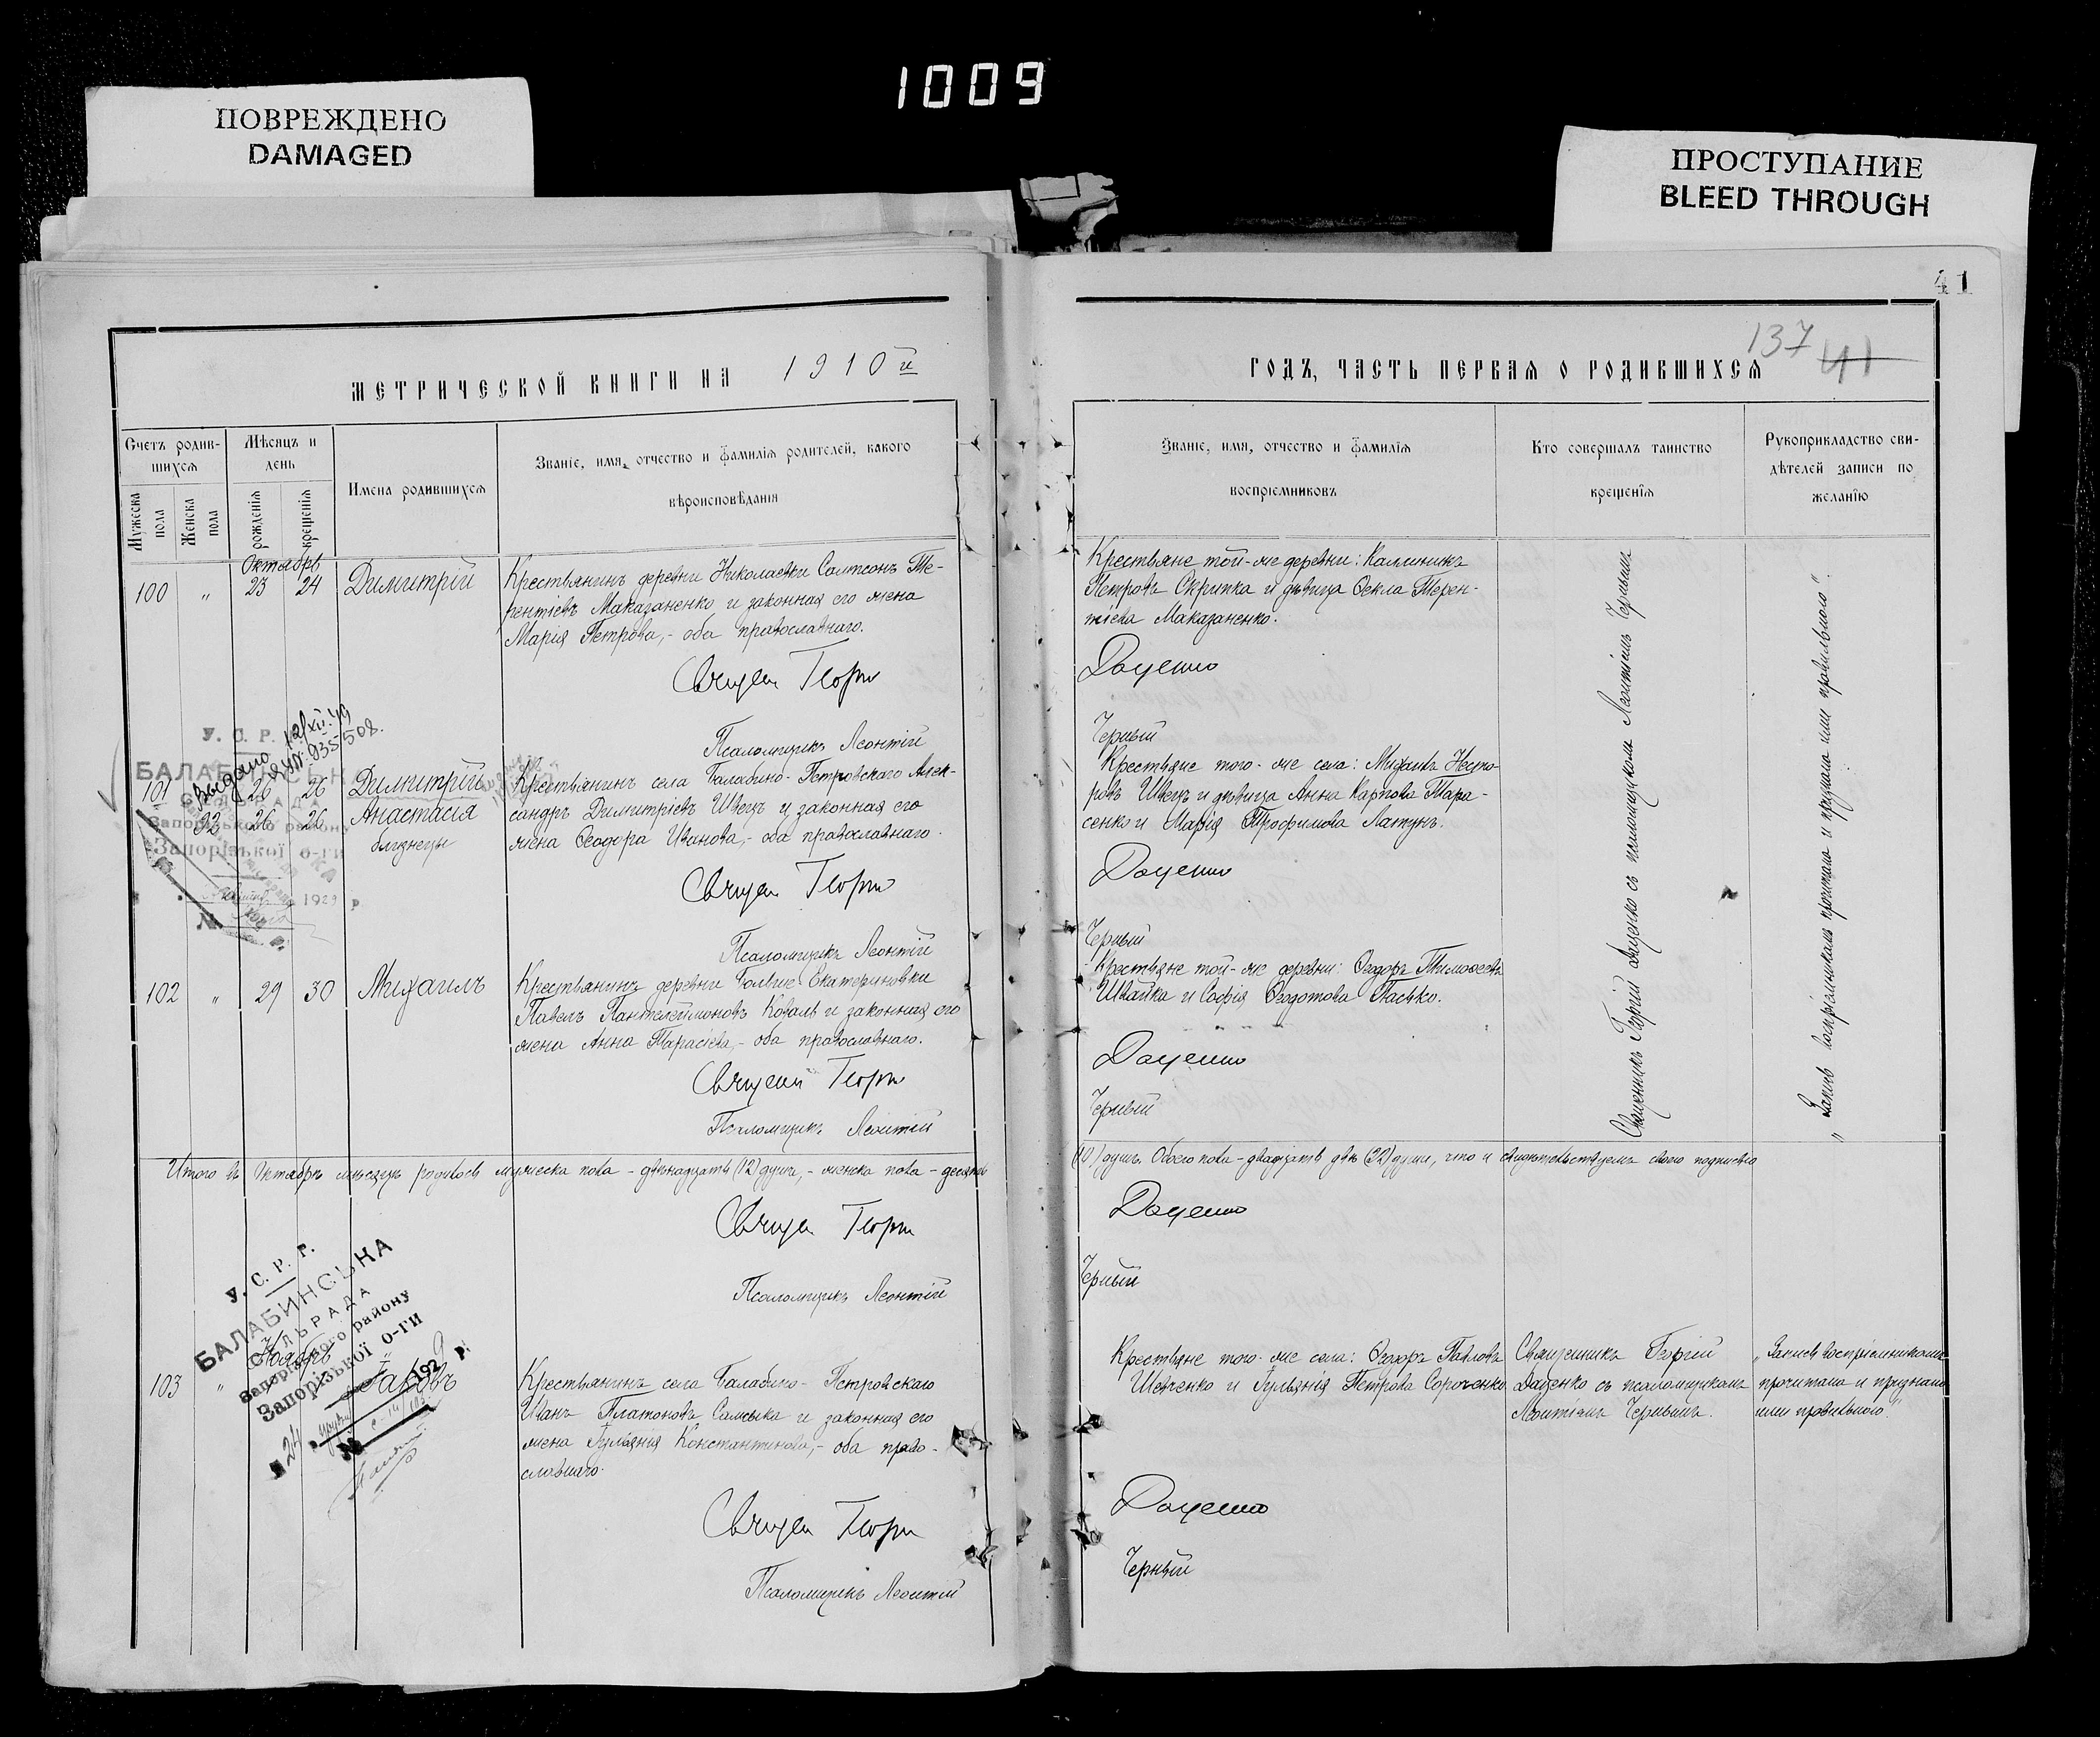 1009
ПОВРЕЖДЕНО
DAMAGED
ПРОСТУПАНИЕ
BLEED THROUGH
МЕТРИЧЕСКОЙ КНИГИ НА 1910й
Счетъ родив-
шихся
Мѣсяцъ и
день
Мужеска
пола
Женска
пола
рожденія
крещенія
Имена родившихся
Званіе, имя, отчество и фамилія родителей, какого
вѣроисповѣданія
Октябрь
100 " 23 24 Димитрій
Крестьянинъ деревни Николаевки Сампсонъ Те-
рентіевъ Маказаненко и законная его жена
Марія Петрова,- оба православнаго.
Священ Георгі
Псаломщикъ Леонтій
У. С. Р. Р.
Выдано 12/XII.49
БАЛАБИНСЬКА
Запорізького району
Запорізької О-ГИ
1929 р
№
101 26 26 Димитрій
92 26 26 Анастасія
близнецы
Крестьянинъ села Балабино-Петровскаго Алек-
сандръ Димитріевъ Швецъ и законная его
жена Ѳеодора Иванова,- оба православнаго.
Священ Георгі
Псаломщикъ Леонтій
102 " 29 30 Михаилъ
Крестьянинъ деревни Больше-Екатериновки
Павелъ Пантелеймоновъ Коваль и законная его
жена Анна Тарасіева,- оба православнаго.
Священ Георгі
Псаломщикъ Леонтій
Итого въ Октябрѣ мѣсяцѣ родилось мужеска пола - двѣнадцать (12) душъ, - женска пола - десять
Священ Георгі
Псаломщикъ Леонтій
У. С. Р. Р.
БАЛАБИНСЬКА
СІЛЬРАДА
Запорізького району
Запорізької О-ГИ
24 1929 р.
№
Ноябрь
103 " Іаковъ
Крестьянинъ села Балабино-Петровскаго
Иванъ Платоновъ Самсыка и законная его
жена Іуліанія Константинова,- оба право-
славнаго.
Священ Георгі
Псаломщикъ Леонтій
41
137
41
ГОДЪ, ЧАСТЬ ПЕРВАЯ О РОДИВШИХСЯ
Званіе, имя, отчество и фамилія
воспріемниковъ
Кто совершалъ таинство
крещенія
Рукоприкладство сви-
дѣтелей записи по
желанію
Крестьяне той-же деревни: Каллиникъ
Петровъ Скрипка и дѣвица Ѳекла Терен-
тіева Маказаненко.
Даценко
Черный
Крестьяне того-же села: Михаилъ Несто-
ровъ Швецъ и дѣвица Анна Карпова Тара-
сенко и Марія Трофимова Латунъ.
Даценко
Черный
Крестьяне той-же деревни: Ѳеодоръ Тимоѳеевъ
Швайка и Софія Ѳеодотова Пасько.
Даценко
Черный
Священникъ Георгій Даценко съ псаломщикомъ Леонтіемъ Чернымъ
"Запись воспріемниками прочитана и признана ими правильною".
(10) душъ. Обоего пола - двадцать двѣ (22) души, что и свидѣтельствуемъ своею подписью
Даценко
Черный
Крестьяне того-же села: Ѳеодоръ Павловъ
Шевченко и Іуліанія Петрова Сороченко
Священникъ Георгій
Даценко съ псаломщикомъ
Леонтіемъ Чернымъ.
"Запись воспріемниками
прочитана и признана
ими правильною."
Даценко
Черный